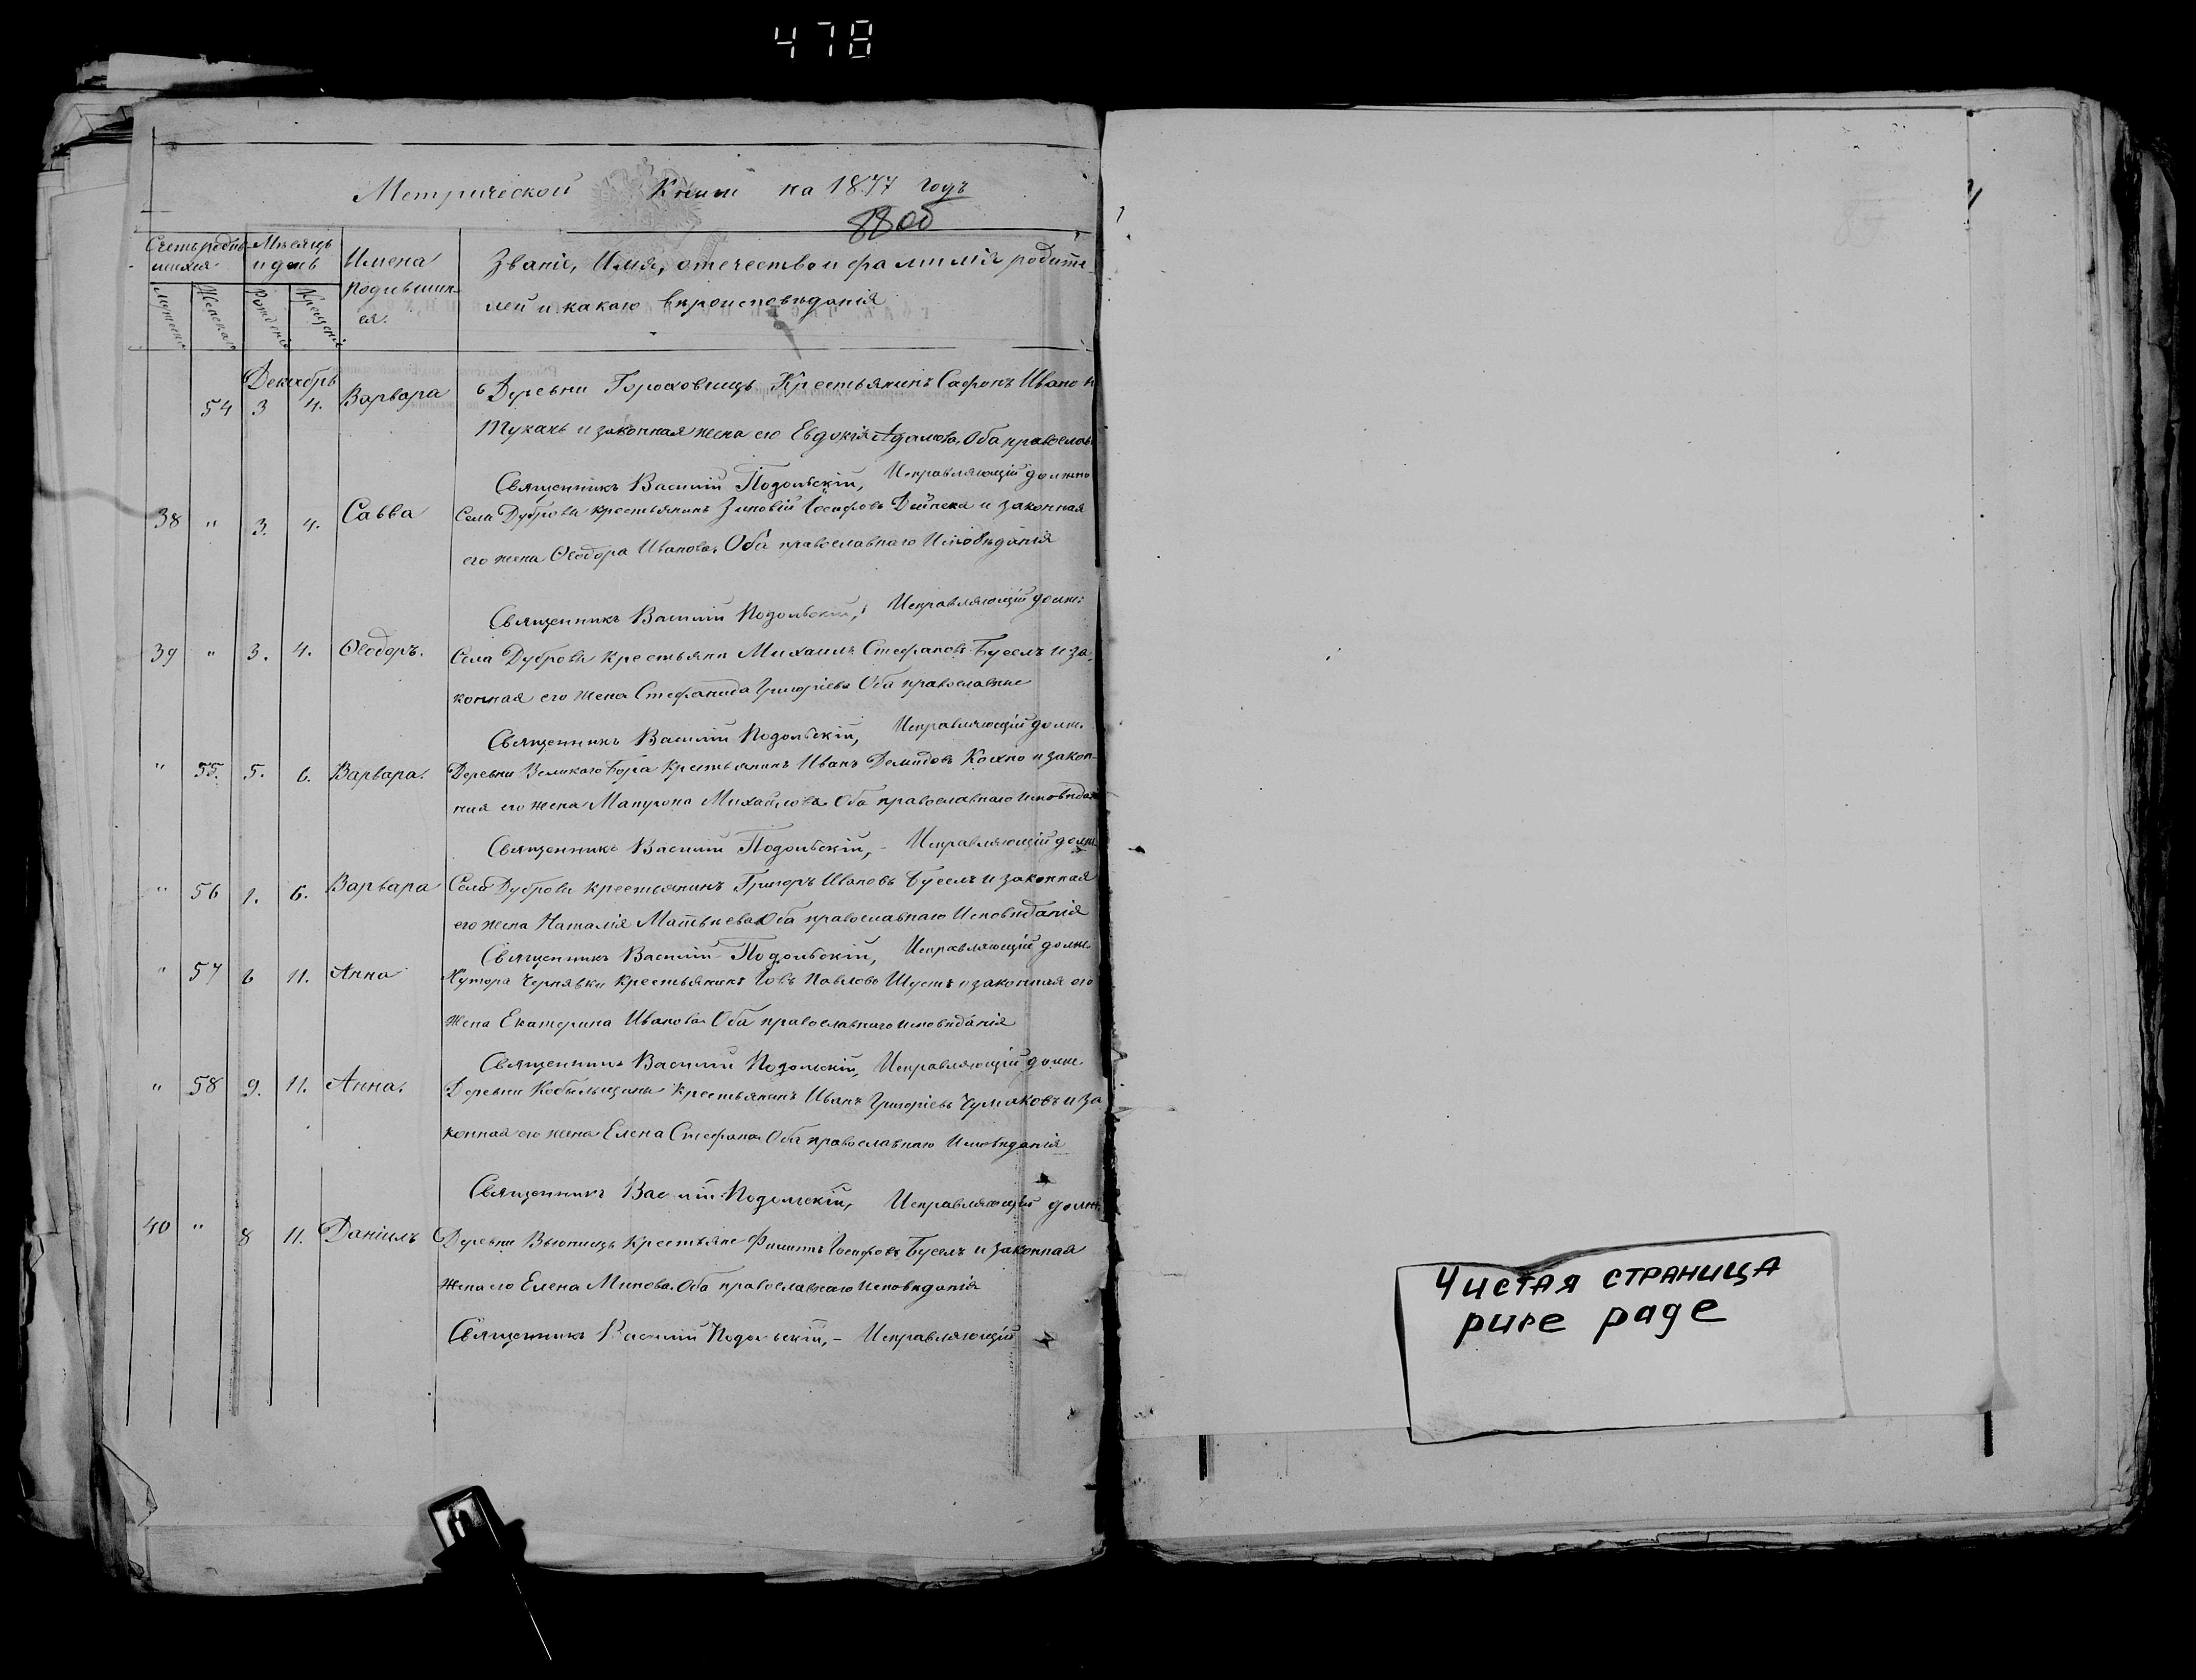 478
Метрической Книги на 1877 годъ
88 об
Счетъ родив- Мѣсяцъ
шихся и день Имена Званіе, Имя, отечество и фамилія родите-
Мужеска Женска Рожденія Крещенія Родивших- лей и какаго вѣроисповѣданія
ся.
Декабрь
54 3 4. Варвара Деревни Гороховищъ Крестьянинъ Сафонъ Ивано
и законная жена его Евдокія Адамова, Оба православ
Священникъ Василій Подольскій, Исправляющій должно
38 " 3. 4. Савва Села Дубровы крестьянинъ Зиновій Іосифовъ Дайнека и законная
его жена Ѳеодора Иванова. Оба православнаго Исповѣданія
Священникъ Василій Подольскій, Исправляющій долж:
39 " 3. 4. Ѳеодоръ. Села Дубровы крестьянн Михаилъ Стефановъ Бусель и за-
конная его жена Стефанида Григоріева Оба православные
Священникъ Василій Подольскій, Исправляющій долж.
" 55. 5. 6. Варвара. Деревни Великаго Бора крестьянинъ Иванъ Демидовъ и закон-
ная его жена Михайлова Оба православнаго исповѣдан
Священникъ Василій Подольскій, - Исправляющій долж
" 56 1. 6. Варвара Села Дубровы крестьянинъ Григоръ Ивановъ Бусель и законная
его жена Наталія Матвѣева Оба православнаго Исповѣданія
Священникъ Василій Подольскій, Исправляющій долж.
" 57 6 11. Анна Хутора Чернявки крестьянинъ Іовъ Павловъ Шустъ и законная его
жена Екатерина Иванова Оба православнаго исповѣданія
Священникъ Василій Подольскій, Исправляющій долж.
" 58 9. 11. Анна. Деревни Кобыльщины крестьянинъ Иванъ Григоріевъ Чумаковъ и за
конная его жена Елена Стефанова Оба православнаго Исповѣданія
Священникъ Василій Подольскій, Исправляющій долж.
40 " 8 11. Даніилъ Деревни Вьюнищъ Крестьяне Филиппъ Іосифовъ Бусель и законная
жена его Елена Минова. Оба православнаго исповѣданія
Священникъ Василій Подольскій, - Исправляющій
Чистая страница
pure page